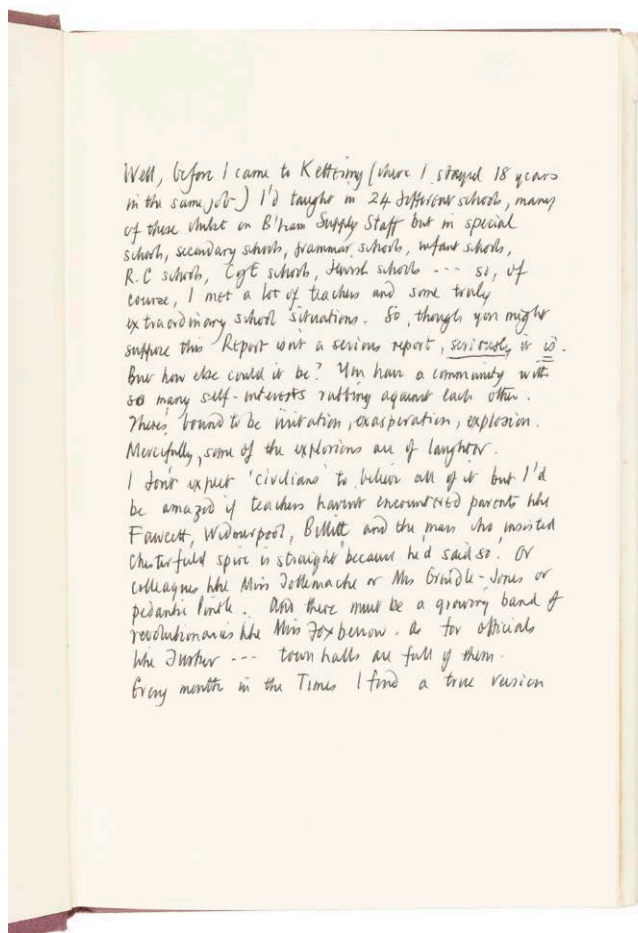 Well, before I came to Kettering (where I stayed 18 years
in the same job) I'd taught in 24 different schools, many
of these whilst on B'ham Supply Staff but in special
schools, secondary schools, grammar schools, infant schools,
R.C schools, CofE schools, Jewish schools --- so, of
course, I met a lot of teachers and some truly
extraordinary school situations. So, though you might
suppose this Report isn't a serious report, seriously it is.
But how else could it be? You have a community with
so many self-interests rubbing against each other.
There's bound to be irritation, exasperation, explosion.
Mercifully, some of the explosions are of laughter.
I don't expect 'civilians' to believe all of it but I'd
be amazed if teachers haven't encountered parents like
Fawcett, Widmerpool, Billitt and the man who insisted
Chesterfield spire is straight 'because he'd said so'. Or
colleagues like Miss Tollemache or Mrs Grindle-Jones or
pedantic Pintle. And there must be a growing band of
revolutionaries like Miss Foxberrow. As for officials
like Tusker --- town halls are full of them.
Every month in the Times I find a true version